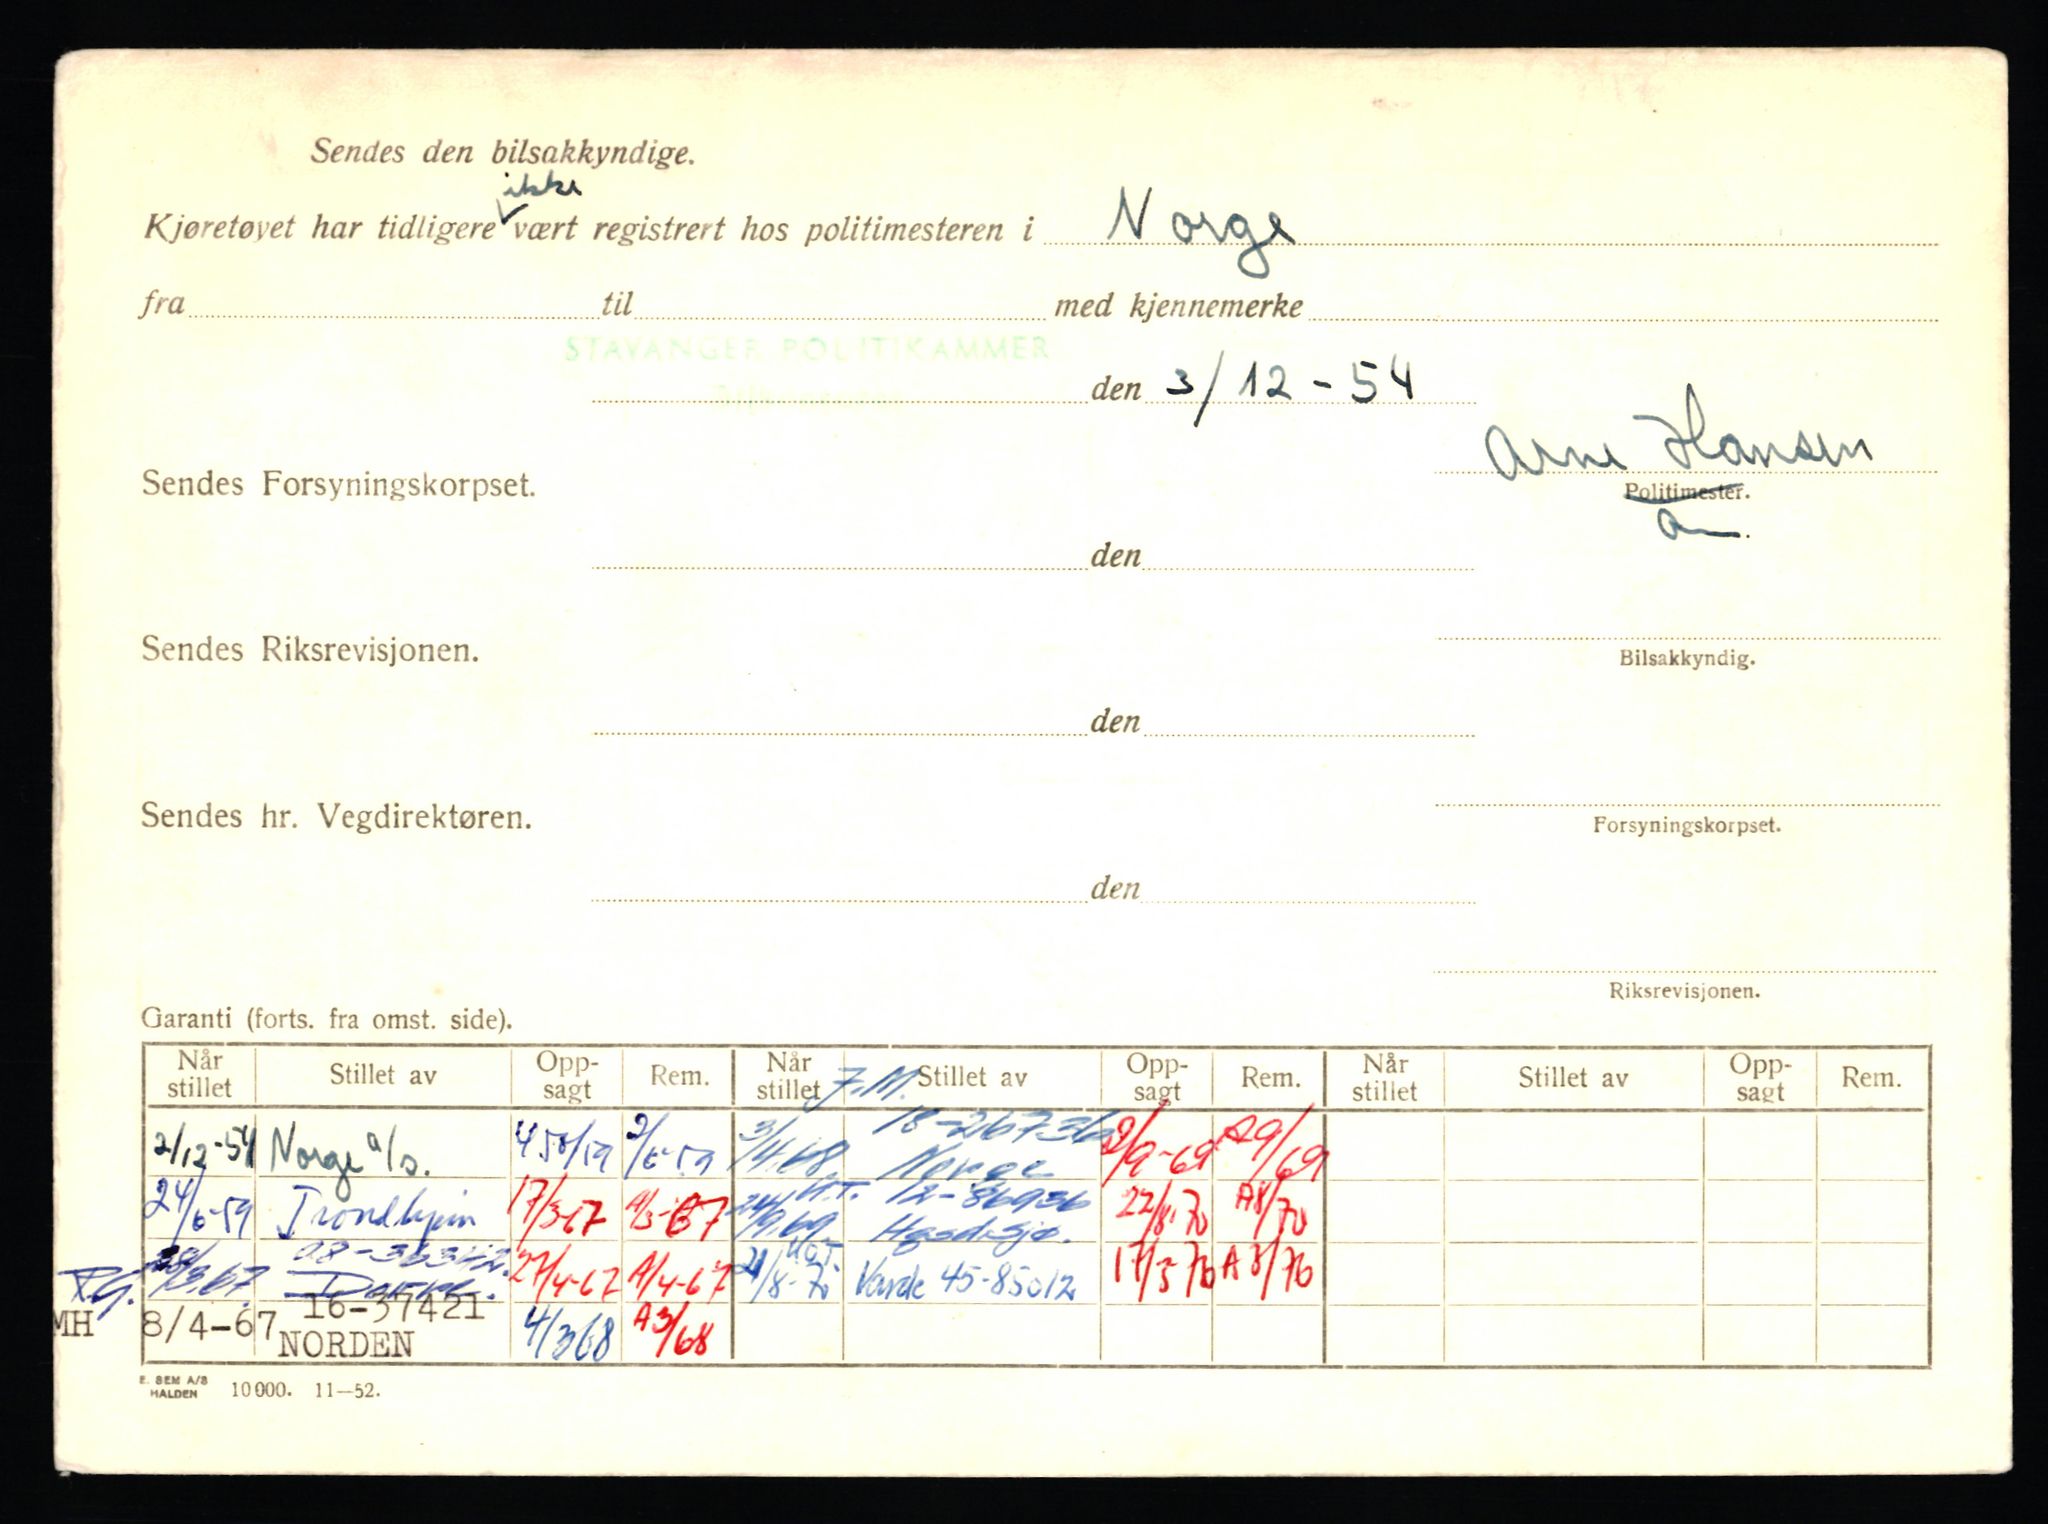 Sendes den bilsakkyndige.
ikke
Kjøretøyet har tidligere vært registrert hos politimesteren i Norge
fra til med kjennemerke
STAVANGER POLITIKAMMER
den 3/12-54
Arne Hansen
Sendes Forsyningskorpset.
Politimester.
den
Sendes Riksrevisjonen.
Bilsakkyndig.
den
Sendes hr. Vegdirektøren.
Forsyningskorpset.
den
Riksrevisjonen.
Garanti (forts. fra omst. side).
Når stillet Stillet av Oppsagt Rem. Når stillet Stillet av Oppsagt Rem. Når stillet Stillet av Oppsagt Rem.
J.M. 18-26736
2/12-54 Norge a/s. 3/4.68. Norge 2/9-69 A9/69
24/6-59 Trondhjem 17/3-67 12-86936 22/8-70 A8/70
27/4-67 A/4-67 21/8-70 Varde 45-85012 17/3 76 A3/76
MH 8/4-67 16-37421 NORDEN 4/3 68 A3/68
E. SEM A/S HALDEN 10000. 11—52.